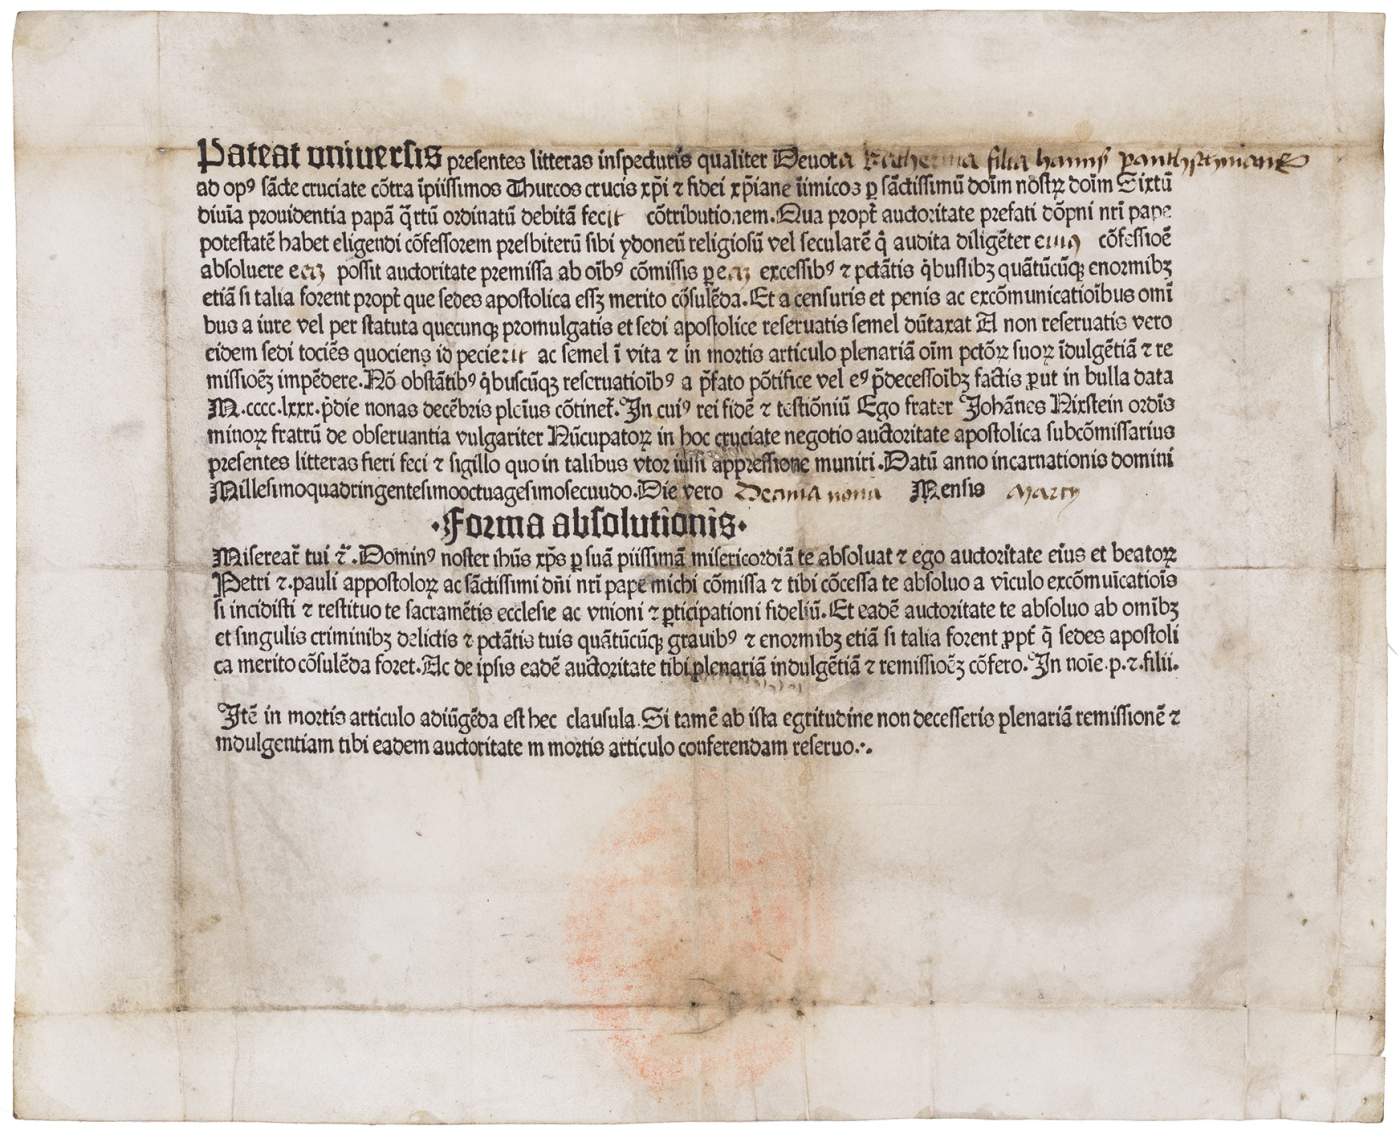 Pateat vniuersis presentes litteras inspecturis qualiter Deuota Katherina filia hannß
ad opꝰ sãcte cruciate cõtra ĩpiissimos Thurcos crucis xp̃i ⁊ fidei xp̃iane ĩimicoꝝ ꝑ sãctissimũ doĩm nõstꝝ doĩm Sixtũ
diuĩa prouidentia papã q̃rtũ ordinatũ debitã fecit cõtributionem. Qua propt̃ auctoritate prefati dõpni nr̃i pape
potestatẽ habet eligendi cõfessorem presbiterũ sibi ydoneũ religiosũ vel secularẽ q̃ audita diligẽter eius cõfessioẽ
absoluere eaʒ possit auctoritate premissa ab oĩbꝰ cõmissis ꝑ eaʒ excessibꝰ ⁊ pctãtis q̃buslibʒ quãtũcũqʒ enormibʒ
etiã si talia forent propt̃ que sedes apostolica essʒ merito cõsulẽda. Et a censuris et penis ac excõmunicatioĩbus omĩ
bus a iure vel per statuta quecunqʒ promulgatis et sedi apostolice reseruatis semel dũtaxat A non reseruatis vero
eidem sedi tociẽs quociens id pecierit ac semel ĩ vita ⁊ in mortis articulo plenariã oĩm pctõꝝ suoꝝ ĩdulgẽtiã ⁊ re
missioẽʒ impẽdere. Nõ obstãtibꝰ q̃buscũqʒ reseruatioĩbꝰ a p̃fato põtifice vel eꝰ p̃decessoĩbʒ factis ꝓut in bulla data
M.cccc.lxxx. p̃die nonas decẽbris pleĩus cõtinet̃. In cuiꝰ rei fidẽ ⁊ testiõniũ Ego frater Johãnes Nixstein ordĩs
minoꝝ fratrũ de obseruantia vulgariter Nũcupatoꝝ in hoc cruciate negotio auctoritate apostolica subcõmissarius
presentes litteras fieri feci ⁊ sigillo quo in talibus vtor iussi appressione muniri. Datũ anno incarnationis domini
Millesimoquadringentesimooctuagesimosecuudo. Die vero Decima nona Mensis Marcy
·Forma absolutionis·
Misereat̃ tui ⁊c̃. Dominꝰ noster ihũs xp̃s ꝑ suã piissimã misericordiã te absoluat ⁊ ego auctoritate eĩus et beatoꝝ
Petri ⁊ pauli appostoloꝝ ac sãctissimi dñi nr̃i pape michi cõmissa ⁊ tibi cõcessa te absoluo a vĩculo excõmuĩcatioĩs
si incidisti ⁊ restituo te sacramẽtis ecclesie ac vnioni ⁊ ꝑticipationi fideliũ. Et eadẽ auctoritate te absoluo ab omĩbʒ
et singulis criminibʒ delictis ⁊ pctãtis tuis quãtũcũqʒ grauibꝰ ⁊ enormibʒ etiã si talia forent ꝓpt̃ q̃ sedes apostoli
ca merito cõsulẽda foret. Ac de ipsis eadẽ auctoritate tibi plenariã indulgẽtiã ⁊ remissioẽʒ cõfero. In noĩe. p. ⁊. filii.
Itẽ in mortis articulo adiũgẽda est hec clausula. Si tamẽ ab ista egritudine non decesseris plenariã remissionẽ ⁊
indulgentiam tibi eadem auctoritate in mortis articulo conferendam reseruo.·.